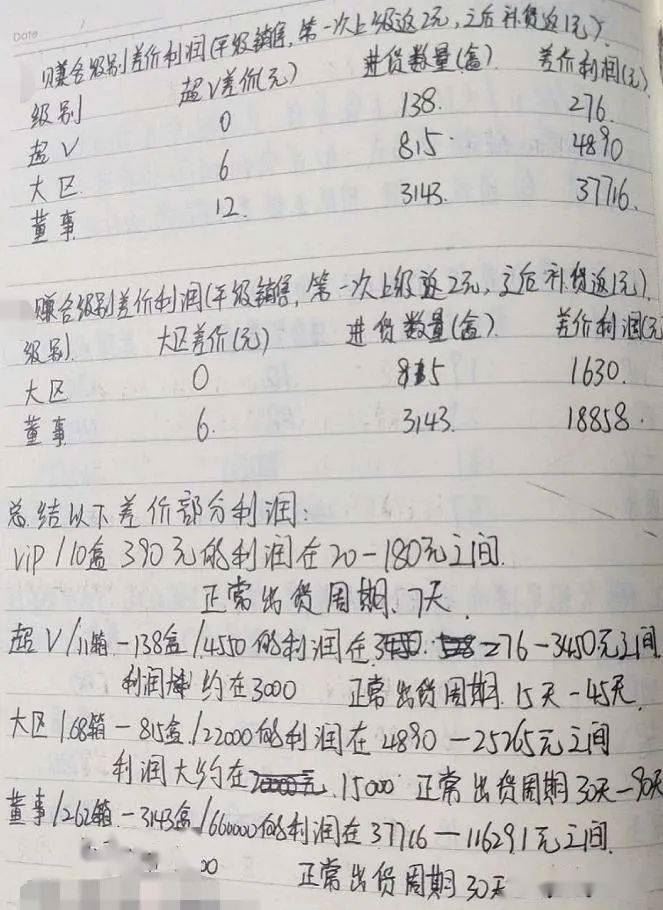 Date
赚合级别差价利润(平级销售,第一次上级返2元,之后补货返1元).
级别 超V差价(元) 进货数量(盒) 差价利润(元)
超V 0 138. 276.
大区 6 815. 4890
董事 12. 3143. 37716.
赚合级别差价利润(平级销售,第一次上级返2元,之后补货返1元).
级别. 大区差价(元) 进货数量(盒) 差价利润(元
大区 0 815 1630.
董事 6. 3143. 18858.
总结以下差价部分利润:
vip/10盒 390元的利润在20-180元之间.
正常出货周期.7天.
超V/11箱-138盒/4550的利润在276-3450元之间
利润 约在3000 正常出货周期.15天-45天.
大区/68箱-815盒/22000的利润在4890-25265元之间
利润大约在15000 正常出货周期30天-90天
董事/262箱-3143盒/66000的利润在37716-116291元之间.
00 正常出货周期30天